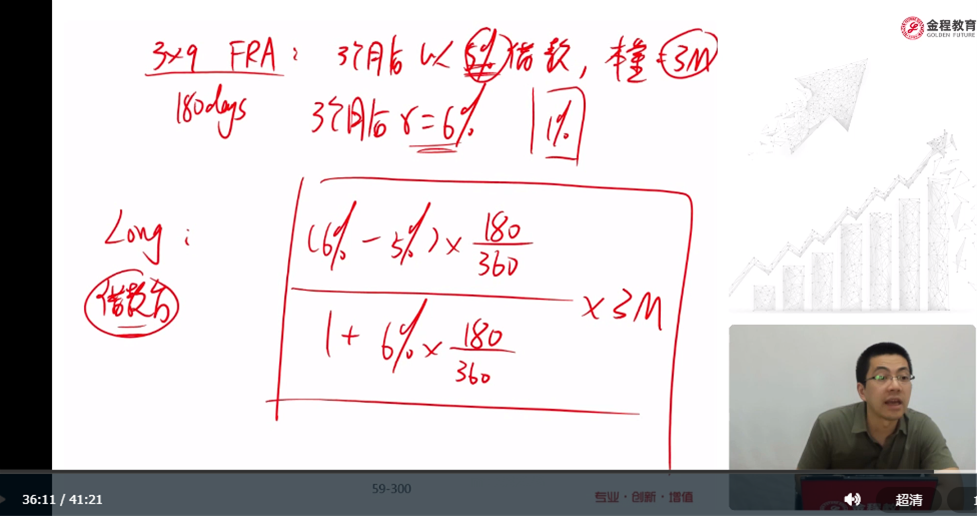 金程教育
GOLDEN FUTURE
3×9 FRA: 3个月后以 5% 借款, 本金=3M
180days
3个月后 r=6% 1%
Long:
借款方
(6% - 5%) × 180/360
1 + 6% × 180/360
× 3M
59-300
专业·创新·增值
36:11 / 41:21
超清